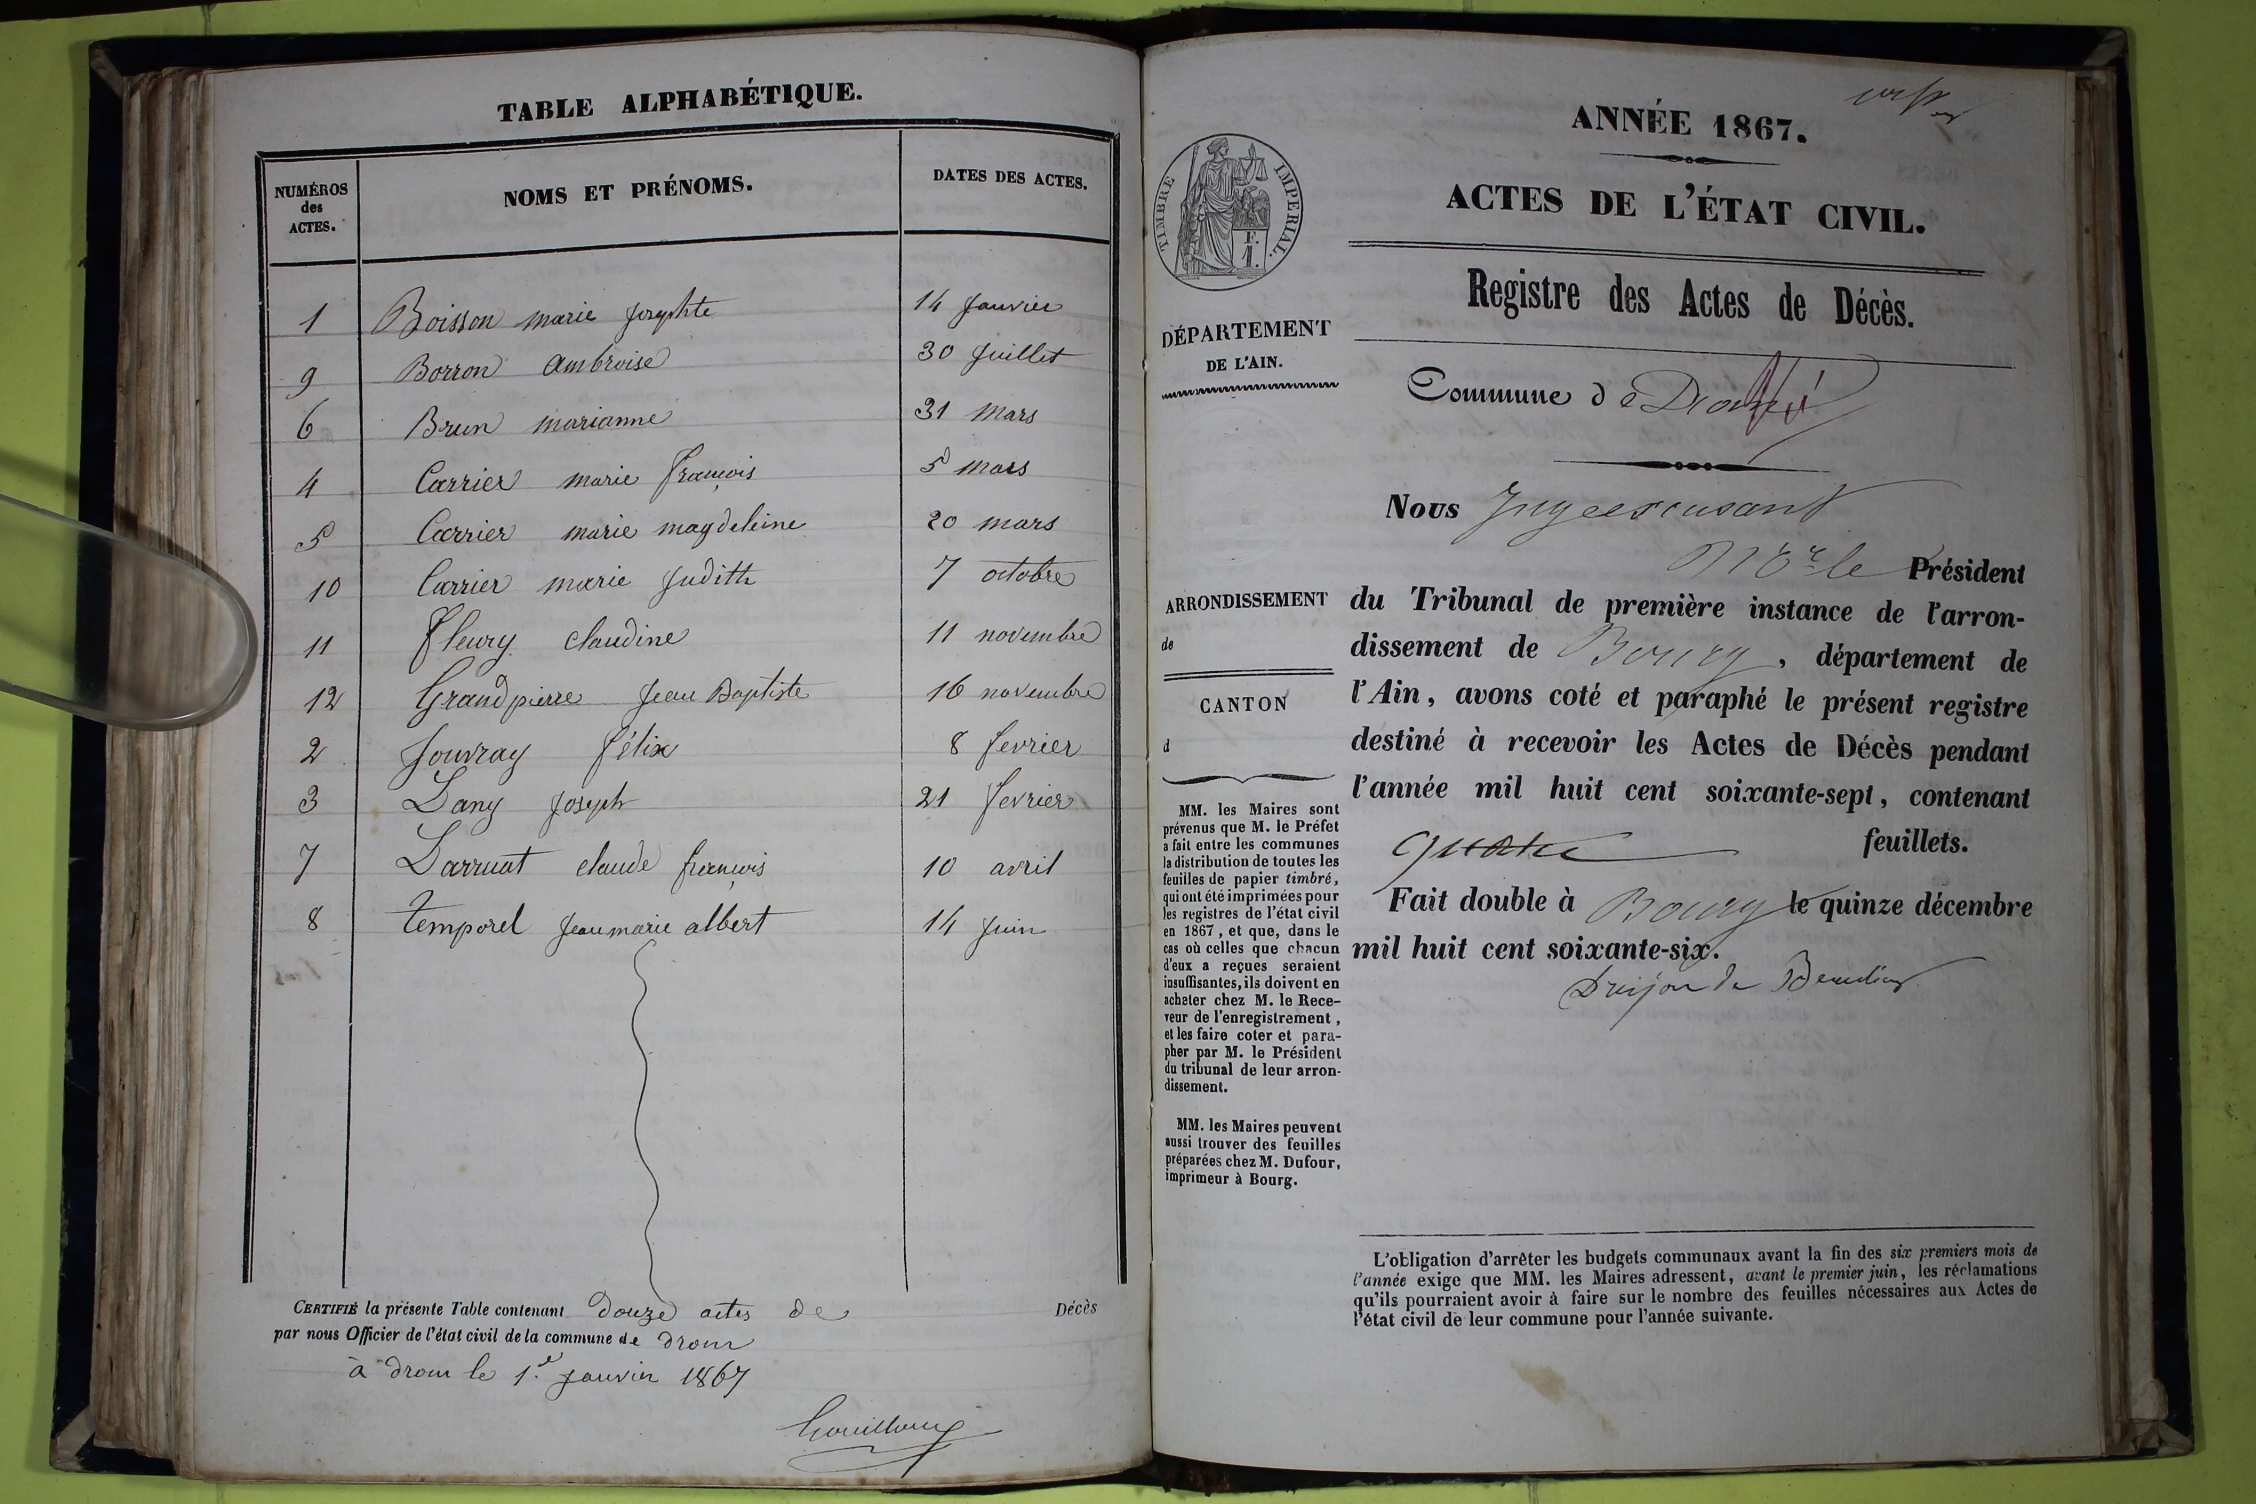 TABLE ALPHABÉTIQUE.
NUMÉROS des ACTES. NOMS ET PRÉNOMS. DATES DES ACTES.
1 Boisson marie Josephte 14 Janvier
9 Borron Ambroise 30 Juillet
6 Brun marianne 31 Mars
4 Carrier marie François 5 mars
5 Carrier marie magdeleine 20 mars
10 Carrier marie Judith 7 octobre
11 Fleury claudine 11 novembre
12 Grandpierre Jean Baptiste 16 novembre
2 Jouvray félix 8 fevrier
3 Lany Joseph 21 fevrier
7 Larruat claude françois 10 avril
8 temporel Jean marie albert 14 Juin
CERTIFIÉ la présente Table contenant douze actes de Décès
par nous Officier de l'état civil de la commune de drom
à drom le 1er Janvier 1867
ANNÉE 1867.
ACTES DE L'ÉTAT CIVIL.
Registre des Actes de Décès.
Commune de
Nous Juge excusant
Mr le Président
du Tribunal de première instance de l'arron-
dissement de Bourg, département de
l'Ain, avons coté et paraphé le présent registre
destiné à recevoir les Actes de Décès pendant
l'année mil huit cent soixante-sept, contenant
quatre feuillets.
Fait double à Bourg le quinze décembre
mil huit cent soixante-six.
TIMBRE IMPERIAL.
F.
1.
DÉPARTEMENT
DE L'AIN.
ARRONDISSEMENT
de
CANTON
d
MM. les Maires sont
prévenus que M. le Préfet
a fait entre les communes
la distribution de toutes les
feuilles de papier timbré,
qui ont été imprimées pour
les registres de l'état civil
en 1867, et que, dans le
cas où celles que chacun
d'eux a reçues seraient
insuffisantes, ils doivent en
acheter chez M. le Rece-
veur de l'enregistrement,
et les faire coter et para-
pher par M. le Président
du tribunal de leur arron-
dissement.
MM. les Maires peuvent
aussi trouver des feuilles
préparées chez M. Dufour,
imprimeur à Bourg.
L'obligation d'arrêter les budgets communaux avant la fin des six premiers mois de
l'année exige que MM. les Maires adressent, avant le premier juin, les réclamations
qu'ils pourraient avoir à faire sur le nombre des feuilles nécessaires aux Actes de
l'état civil de leur commune pour l'année suivante.